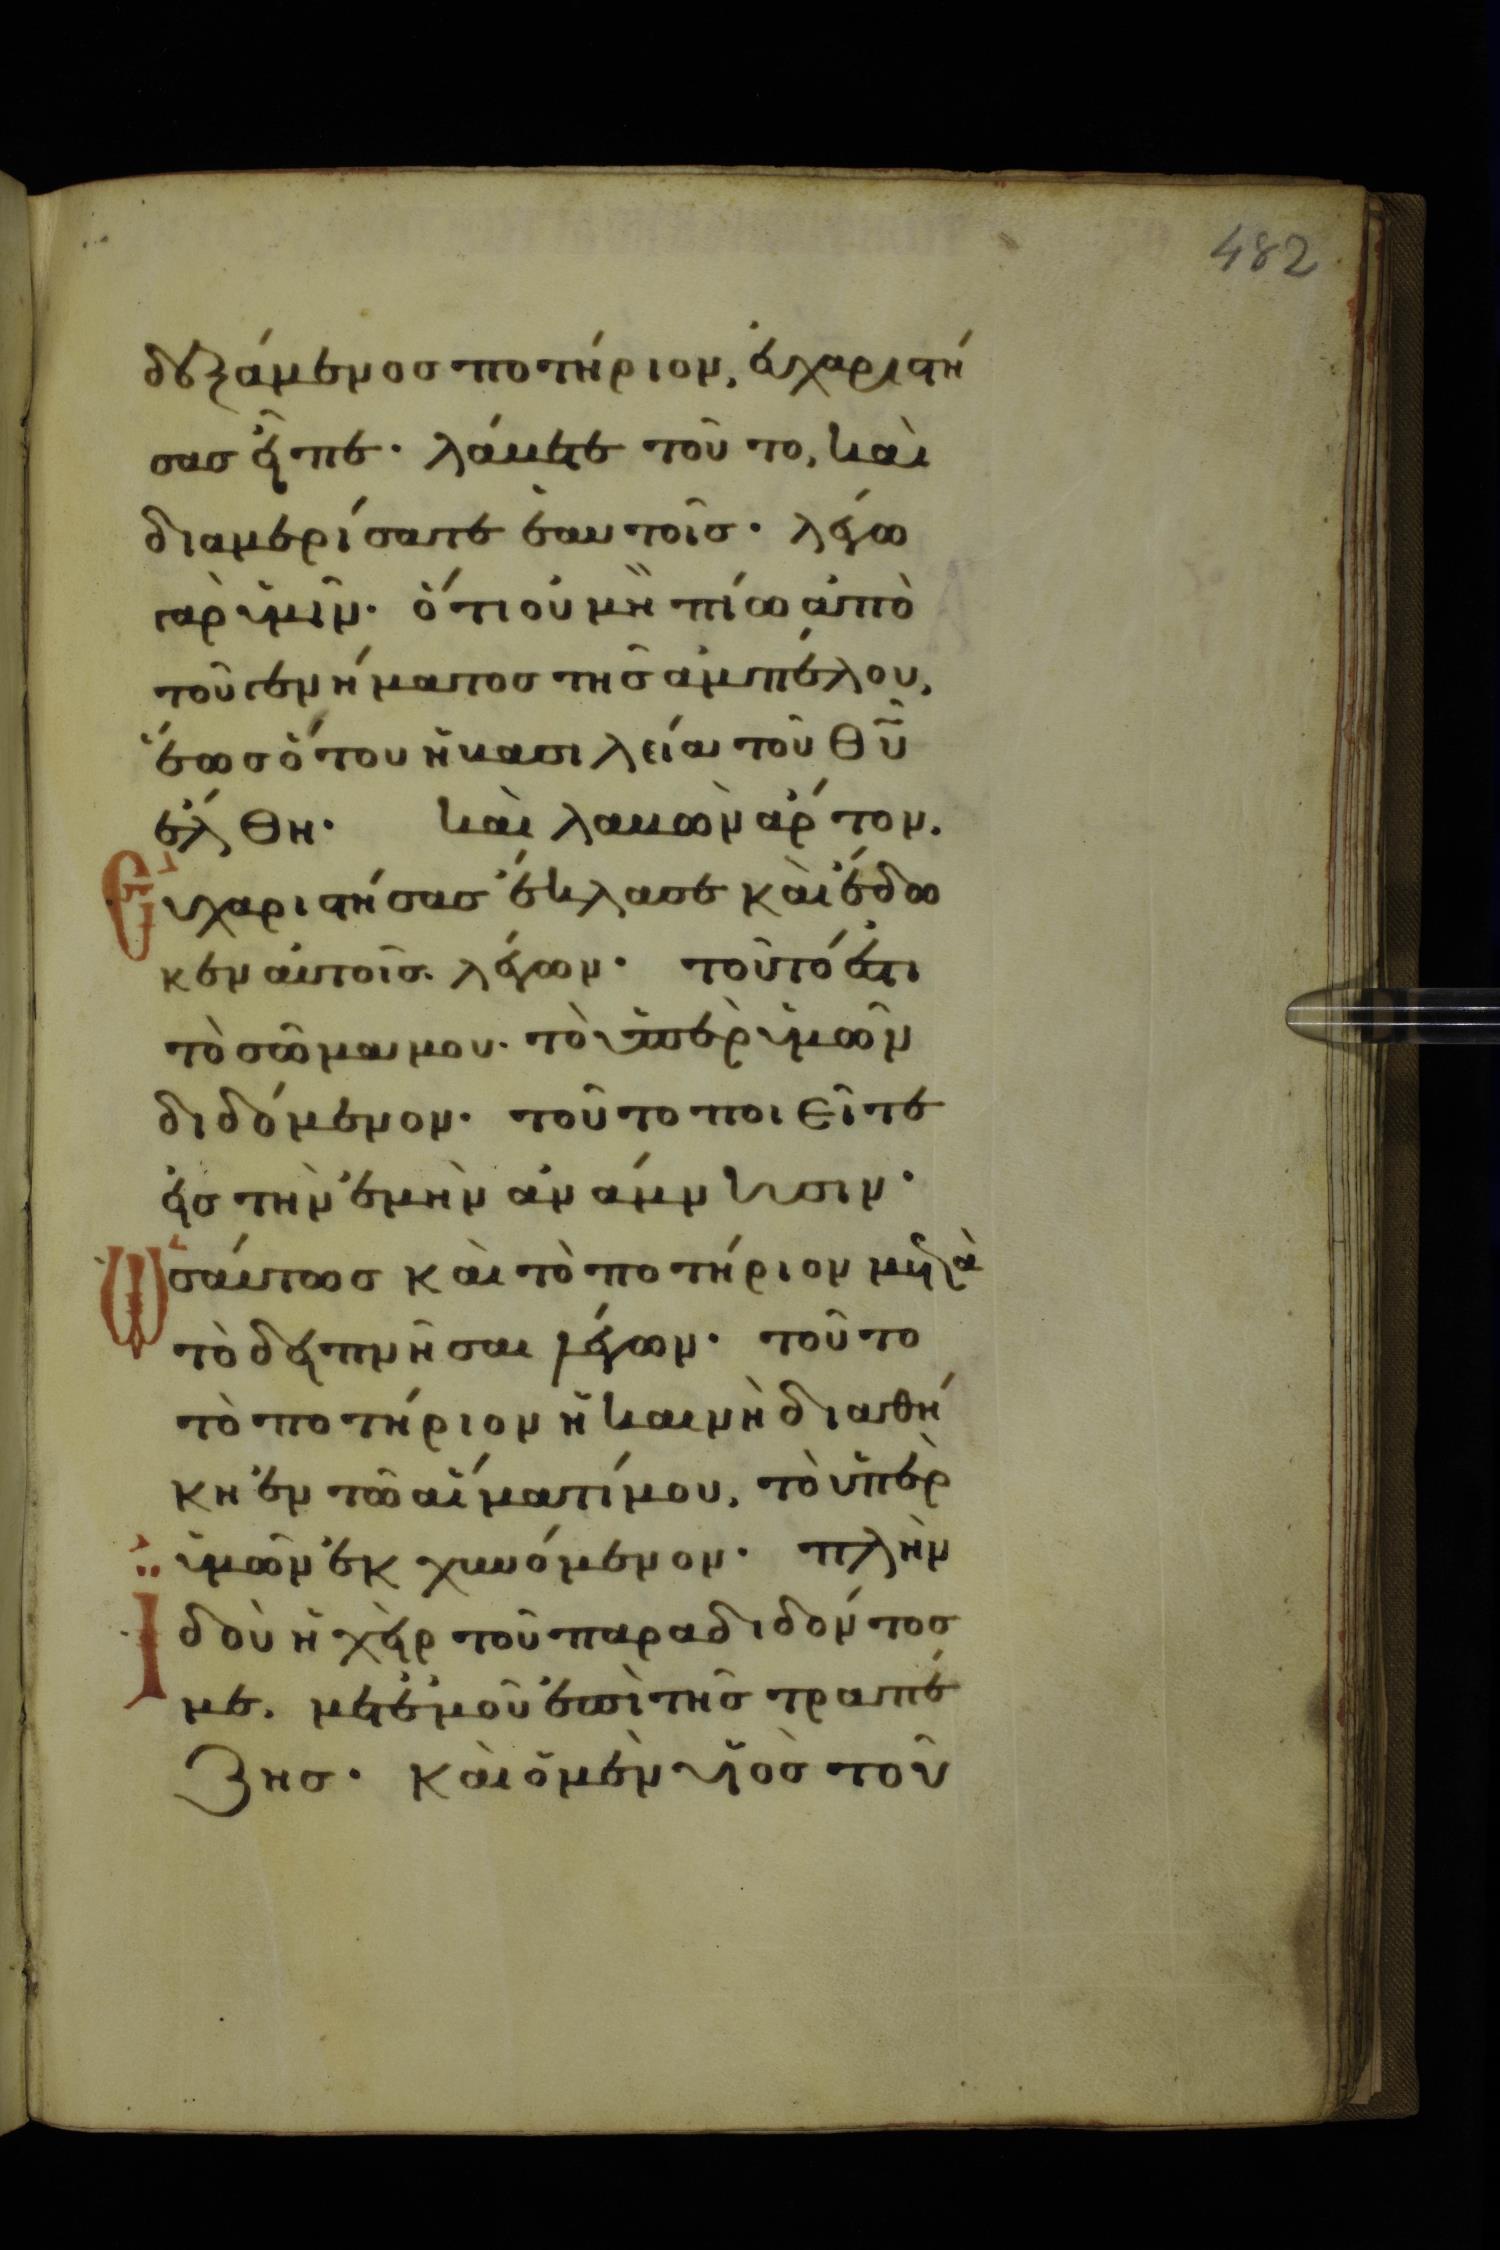 482
δεξάμενος ποτήριον, εὐχαριστή
σας εἶπε· λάβετε τοῦτο, καὶ
διαμερίσατε ἑαυτοῖς· λέγω
γὰρ ὑμῖν· ὅτι οὐ μὴ πίω ἀπὸ
τοῦ γενήματος τῆς ἀμπέλου,
ἕως ὅτου ἡ βασιλεία τοῦ θυ
ἔλθη· καὶ λαβὼν ἄρτον.
Εὐχαριστήσας ἔκλασε καὶ ἔδω
κεν αὐτοῖς. λέγων· τοῦτό ἐστι
τὸ σῶμα μου· τὸ ὑπὲρ ὑμῶν
διδόμενον· τοῦτο ποιεῖτε
εἰς τὴν ἐμὴν ἀνάμνησιν·
Ὡσαύτως καὶ τὸ ποτήριον μετὰ
τὸ δειπνῆσαι λέγων· τοῦτο
τὸ ποτήριον ἡ καινὴ διαθή
κη ἐν τῶ αἵματί μου, τὸ ὑπὲρ
ὑμῶν ἐκχυνόμενον· πλὴν
Ἰδοὺ ἡ χεὶρ τοῦ παραδιδόντος
με. μετ' ἐμοῦ ἐπὶ τῆς τραπέ
ζης· καὶ ὁ μὲν υἱὸς τοῦ